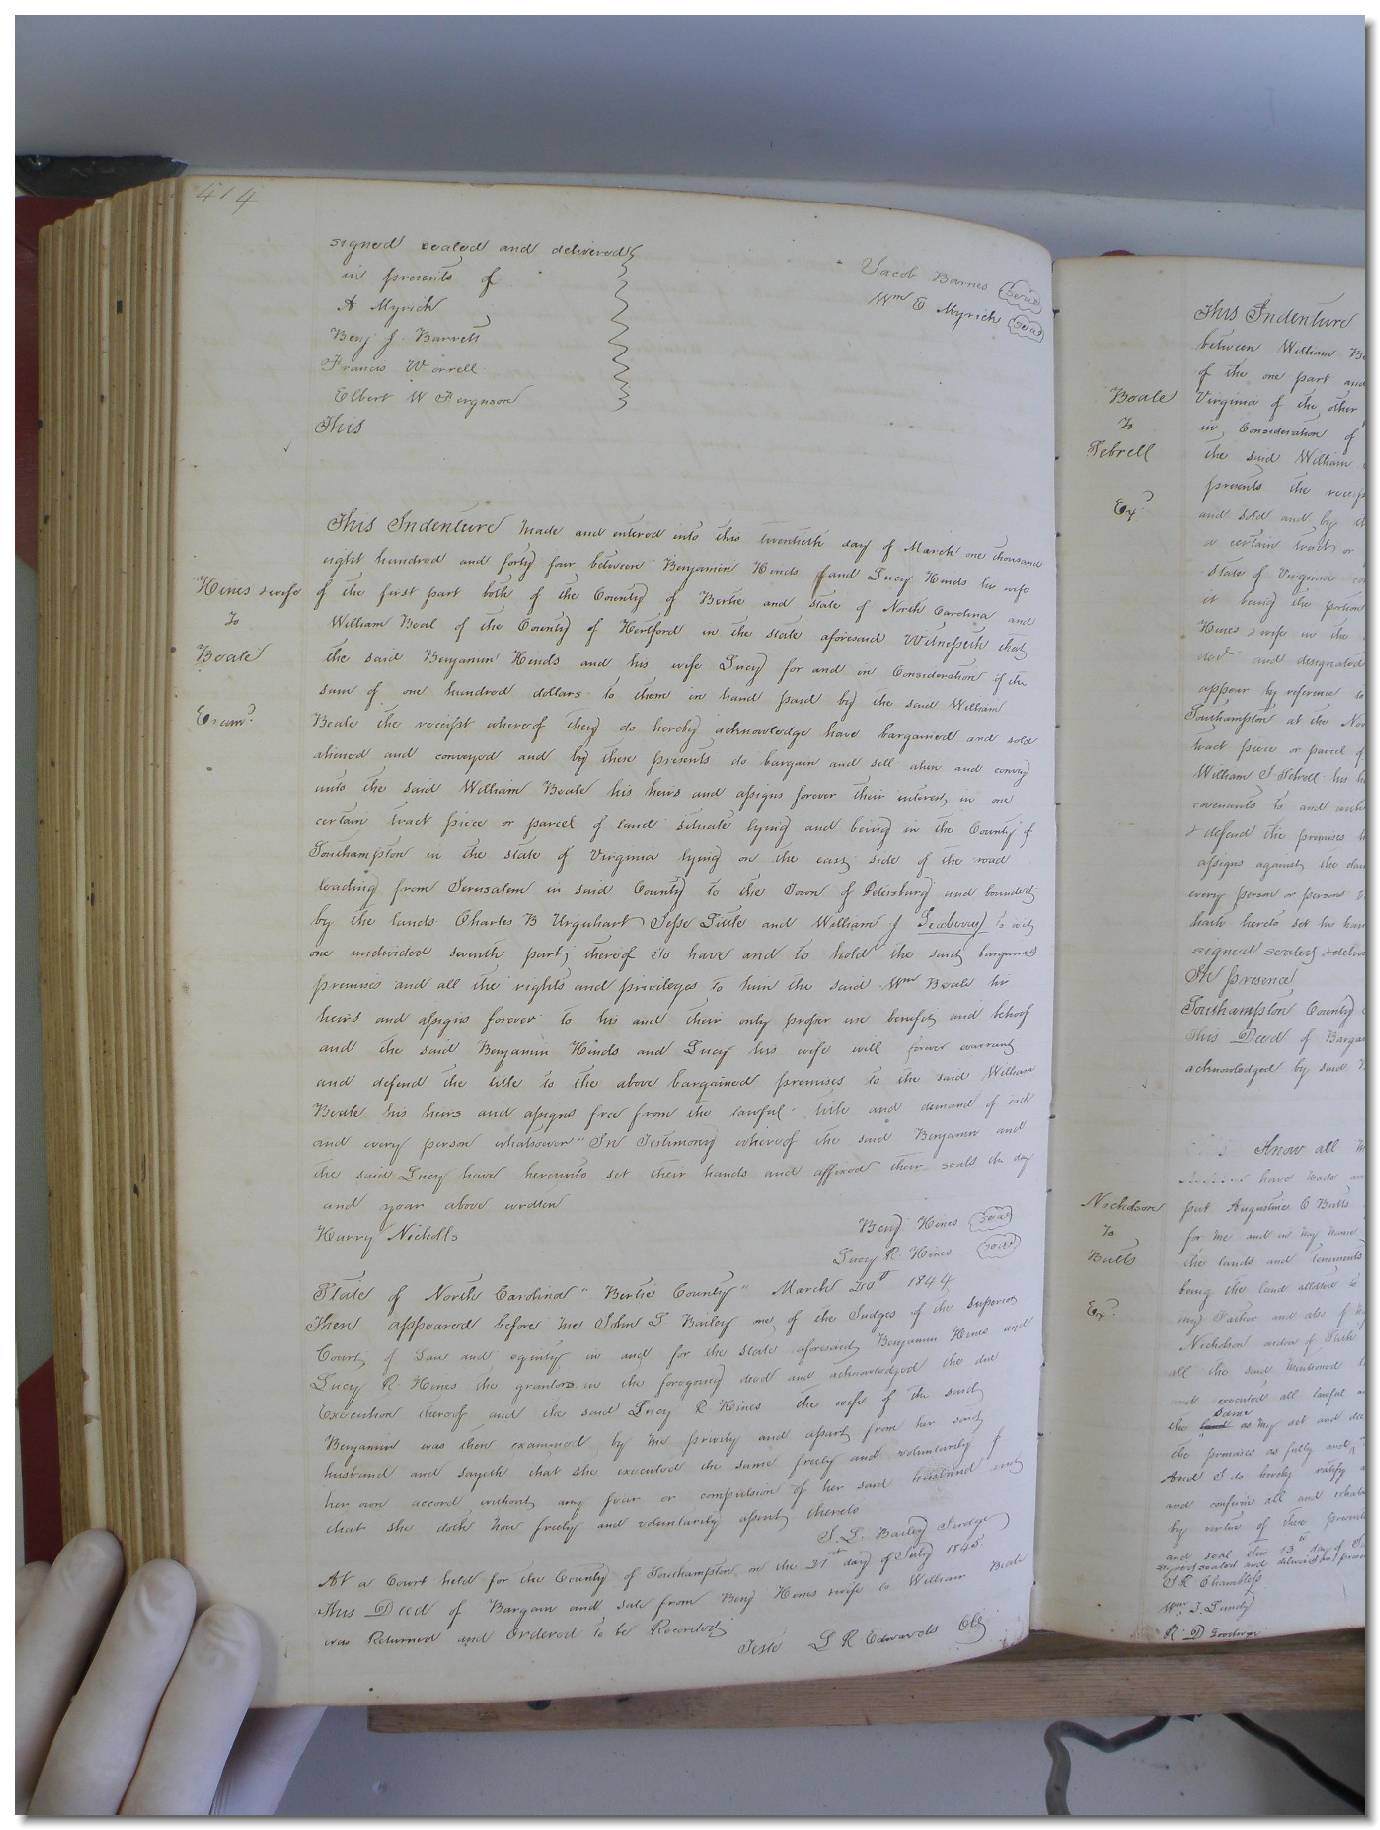 414
signed sealed and delivered
in presents of
A Myrick
Benj J. Barrett
Francis Worrell
Elbert W Ferguson
This
Jacob Barnes seal
Wm E Myrick seal
This Indenture made and entered into this twentieth day of March one thousand
eight hundred and forty four between Benjamin Hinds and Lucy Hinds his wife
Hines & wife
To
Beale
Exam?
of the first part both of the County of Bertie and State of North Carolina and
William Beal of the County of Hertford in the state aforesaid Witnesseth that
the said Benjamin Hinds and his wife Lucy for and in Consideration of the
sum of one hundred dollars to them in hand paid by the said William
Beale the receipt whereof they do hereby acknowledge have bargained and sold
aliened and conveyed and by these presents do bargain and sell alien and convey
unto the said William Beale his heirs and assigns forever their interest, in one
certain tract piece or parcel of land situate lying and being in the County of
Southampton in the state of Virginia lying on the east side of the road
leading from Jerusalem in said County to the Town of Petersburg and bounded
by the lands Charles B Urquhart Jesse Little and William J Seaberry to wit,
one undivided seventh part, thereof To have and to hold the said bargained
premises and all the rights and privileges to him the said Wm Beale his
heirs and assigns forever to his and their only proper use benefit, and behoof
and the said Benjamin Hinds and Lucy his wife will forever warrant
and defend the title to the above bargained premises to the said William
Beale his heirs and assigns free from the lawful title and demand of each
and every person whatsoever" In Testimony whereof the said Benjamin and
the said Lucy have hereunto set their hands and affixed their seals the day
and year above written
Harry Nicholls
Benj Hines seal
Lucy R Hines seal
State of North Cardinal "Bertie County" March 20th 1844
Then appeared before me John L Bailey one of the Judges of the Superior
Court, of Law and equity in and for the State aforesaid, Benjamin Hines and
Lucy R Hines the grantors in the foregoing deed and acknowledged the due
Execution thereof and the said Lucy R Hines the wife of the said
Benjamin was then examined by me privily and apart, from her said
husband and sayeth that she executed the same freely and voluntarily of
her own accord without, any fear or compulsion of her said husband and
that she doth now freely and voluntarily assent, thereto
J. L. Bailey Judge
At a Court held for the County of Southampton on the 21st day of July 1845
This Deed of Bargain and sale from Benj Hines & wife to William Beale
was Returned and Ordered to be Recorded
Teste L R Edwards Clk
This Indenture
between William Be
of the one part and
Beale
To
Tebrell
Ex?
Virginia of the other
in Consideration of
the said William
presents the receip
and sold and by th
a certain tract or
State of Virginia
it being the portion
Hines & wife in the
and designated
appear by reference to
Southampton at the Nov
tract piece or parcel of
William S Tebrell his h
covenants to and with
& defend the premises
assigns against, the
every person or persons
hath hereto set his han
signed sealed & deliv
In presence
Southampton County
This Deed of Barga
acknowledged by said
Know all
have made
Nicholson
To
Butts
Ex?
put Augustine C Butts
for me and in my name
the lands and tenements
being the land allotted to
my Father and also
Nicholson widow of
all the said mentioned
and executed all lawful
same
the land as my act and dee
the premises as fully and
And I do hereby ratify
and confirm all and whats
by virtue of these presents
and seal this 13th day of
signed sealed and delivered in presen
Wm J. Gundy
R D